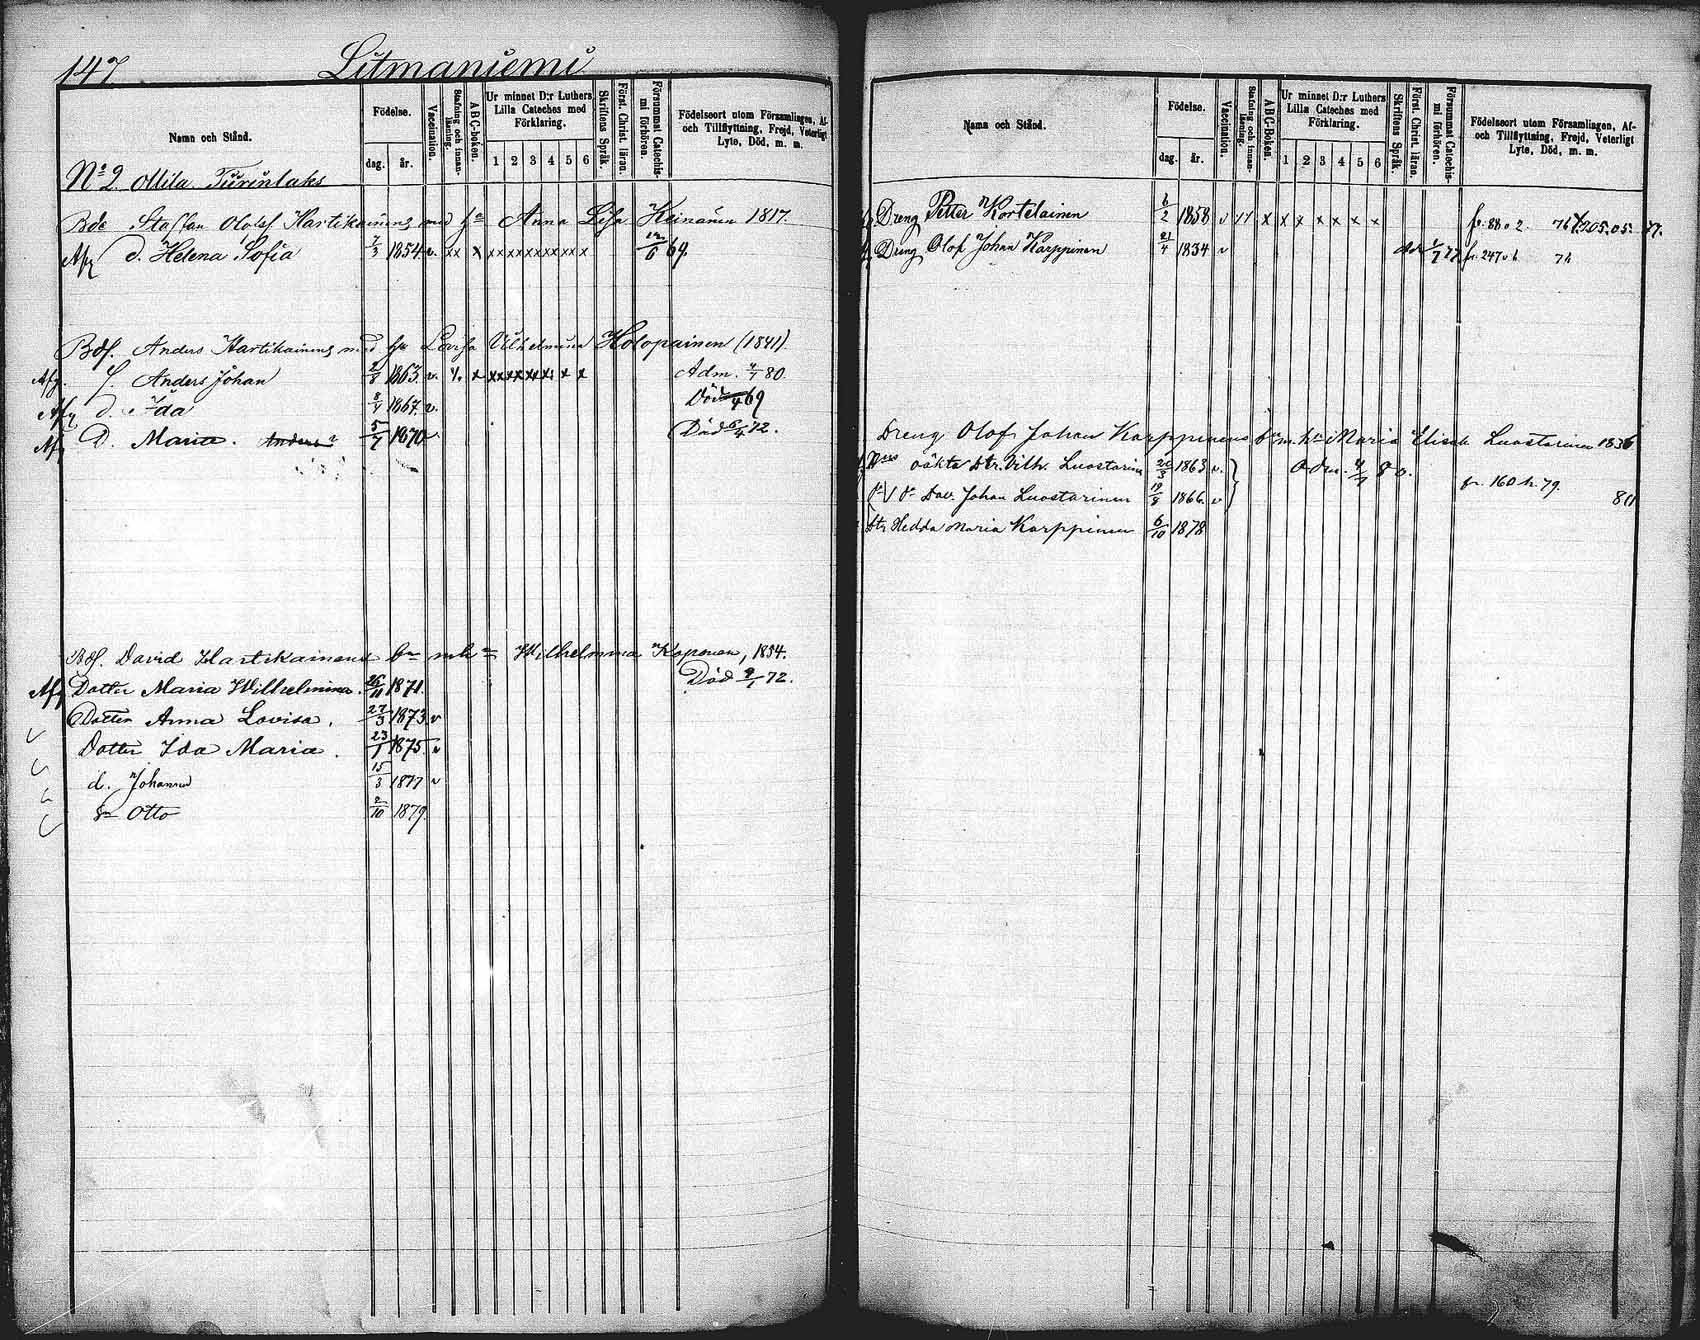 147 Litmaniemi
Namn och Stånd.
Födelse.
dag. år.
Vaccination.
Stafning och innan-läsning.
ABC-boken.
Ur minnet D:r Luthers Lilla Cateches med Förklaring.
1 2 3 4 5 6
Skriftens Språk.
Först. Christ. läran.
Försummat Catechismi förhören.
Födelseort utom Församlingen, Af- och Tillflyttning, Frejd, Veterligt Lyte, Död, m. m.
No 2
Bde Staffan Olofsf Hartikainens med hu Anna Lisa Heinänen 1817.
Afg d. Helena Sofia 7/3 1854 v. xx x xxxxxxxxx x 69.
Bdf. Anders Hartikainens med hu Lovisa Vilhelmina Holopainen (1841)
Afg. S. Anders Johan 2/8 1863. v. x xxxxxx x x Adm. 4/7 80.
Afg d. Ida 8/4 1867. v. Död 69
Afg D. Maria. 5/7 1870 v. Död 6/4 72.
Bdf. David Hartikainens Wilhelmina Koponen, 1854.
Afg Dotter Maria Wilhelmina. 26/11 1871. Död 2/1 72.
Dotter Anna Lovisa. 27/3 1873 v
Dotter Ida Maria. 23/1 1875. v
d. Johanna 15/3 1877 v
Sn Otto 2/10 1879.
Namn och Stånd.
Födelse.
dag. år.
Vaccination.
Stafning och innan-läsning.
ABC-Boken.
Ur minnet D:r Luthers Lilla Cateches med Förklaring.
1 2 3 4 5 6
Skriftens Språk.
Först. Christ. läran.
Försummat Catechismi förhören.
Födelseort utom Församlingen, Af- och Tillflyttning, Frejd, Veterligt Lyte, Död, m. m.
Dreng Petter Kortelainen 6/2 1858 v x x x x x x x fr. 88 76 77.
Dreng Olof Johan Karppinen 21/4 1834 v fr. 247 76
Dreng Olof Johan Karppinens Maria Elisab Luostarinen 1836
oäkta dtr. Vilh. Luostarinen 1863 v. Adm. 4/7 80.
Dav. Johan Luostarinen 19/8 1866. v fr. 160 h. 79. 811
dtr Hedda Maria Karppinen 6/10 1878